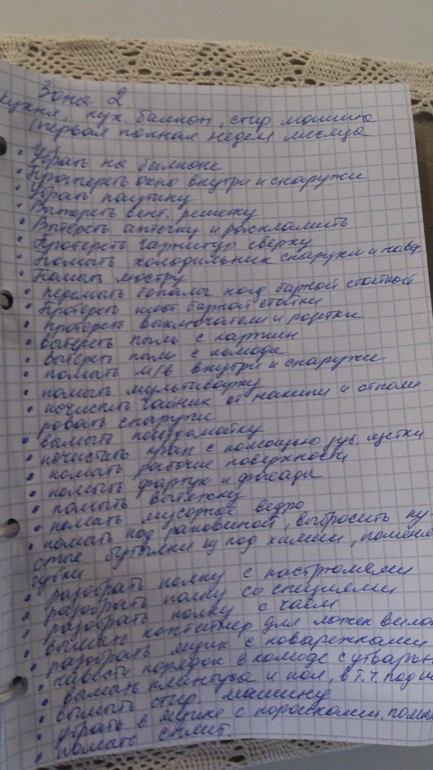 Зона 2.
кухня, кух. балкон, стир машина
(первая полная неделя месяца
• Убрать на балконе
• Протереть окно внутри и снаружи
• Убрать паутину
• Вытереть вент. решетку
• Вытереть аптечку и расхламить
• Протереть гарнитур сверху
• Помыть холодильник снаружи и навер
• Помыть люстру
• перемыть бокалы над барной стойкой
• протереть шест барной стойки
• протереть выключатели и розетки
• вытереть пыль с картин
• вытереть пыль с комода
• помыть м/в внутри и снаружи
• помыть мультиварку
• почистить чайник от накипи и отполи
ровать снаружи
• вымыть посудомойку
• почистить кран с помощью зуб. щетки
• помыть рабочие поверхности
• помыть фартук и фасады
• помыть вытяжку
• помыть мусорное ведро
• помыть под раковиной, выбросить пу-
стые бутылки из под химии, поменя
губки
• разобрать полку с кастрюлями
• разобрать полку со специями
• разобрать полку с чаем
• вымыть контейнер для ложек вилок
• разобрать ящик с поварежками
• навести порядок в комоде с утварью
• вымыть плинтуса и пол, в т.ч. под
• вымыть стир машину
• убрать в ящике с порошками, помы
• помыть